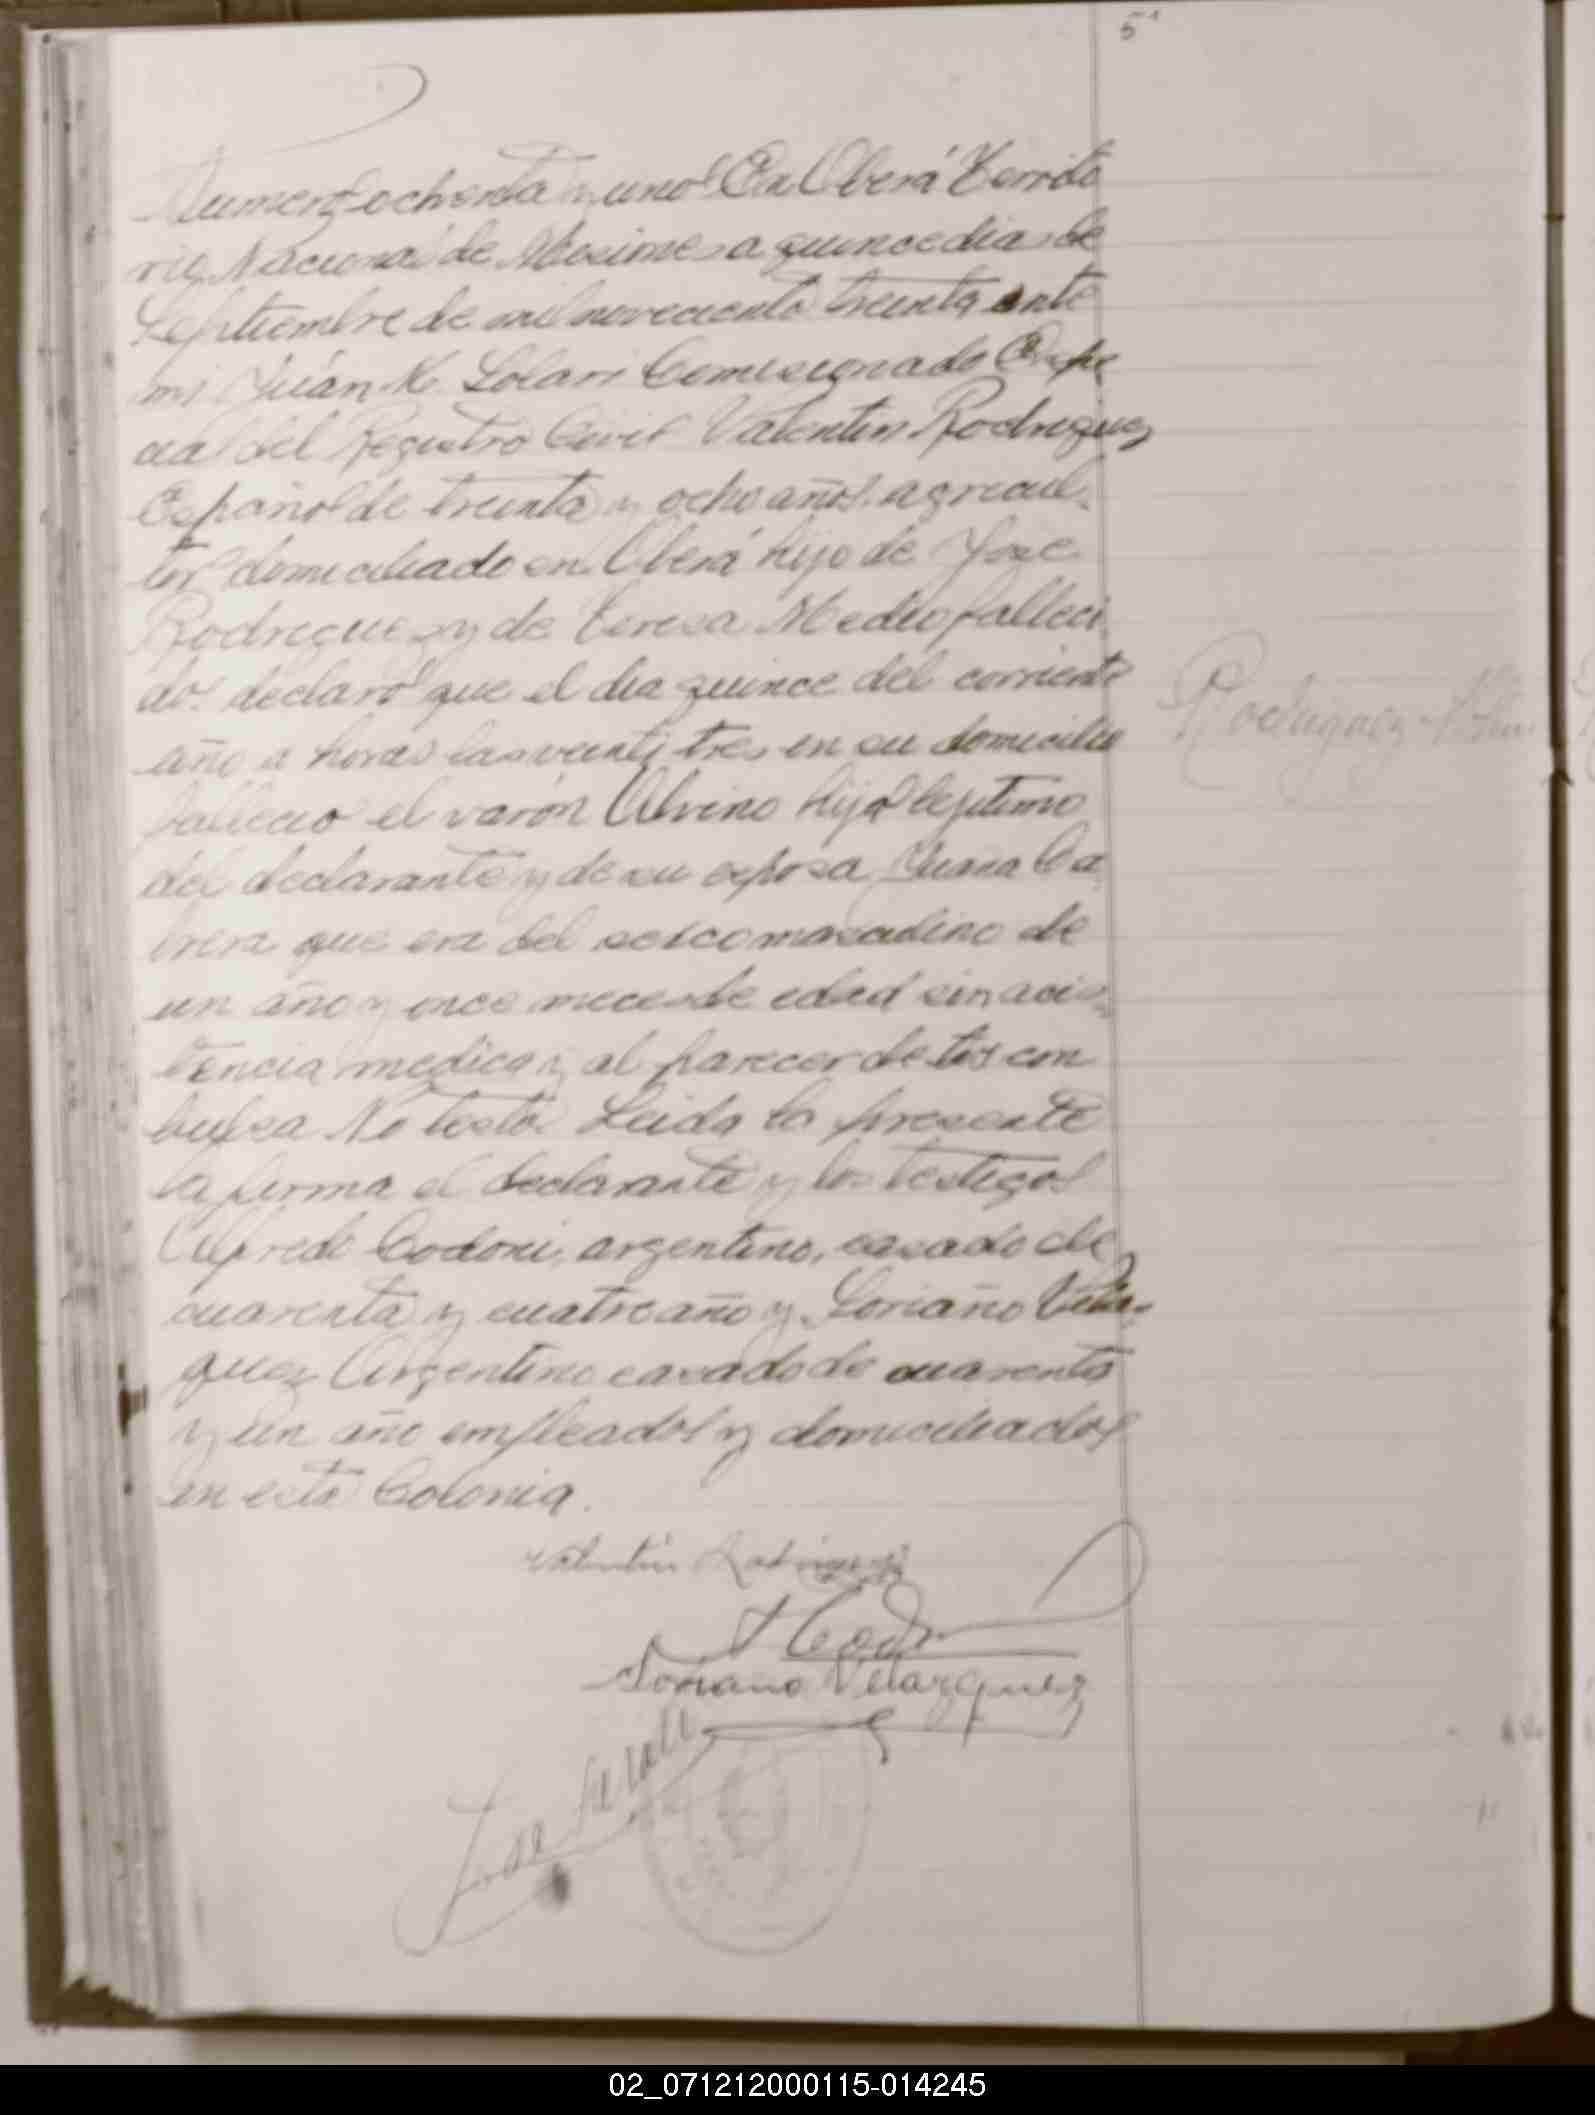 51
Numero ochenta y uno En Oberá Territo
rio Nacional de Misiones a quince dias de
Septiembre de mil novecientos treinta ante
mi Juán M. Solari Comisionado Espe
cial del Registro Civil Valentin Rodriguez
Español de treinta y ocho años agricul
tor domiciliado en Oberá hijo de Jose
Rodriguez y de Teresa Medio falleci
dos declaró que el dia quince del corriente
año a horas las veinti tres en su domicilio
fallecio el varón Alvino hijo lejitimo
del declarante y de su esposa Juana Ca
brera que era del sexco masculino de
un año y once meces de edad sin acis
tencia medica y al parecer de tos con
bulsa No testó Leida la presente
la firma el declarante y los testigos
Alfredo Codoni, argentino, casado de
cuarenta y cuatro año y Soriano Velas
quez Argentino casado de cuarenta
y un año empleados y domiciliados
en esta Colonia.
Rodriguez
Valentin Rodriguez
Soriano Velazquez
02_071212000115-014245